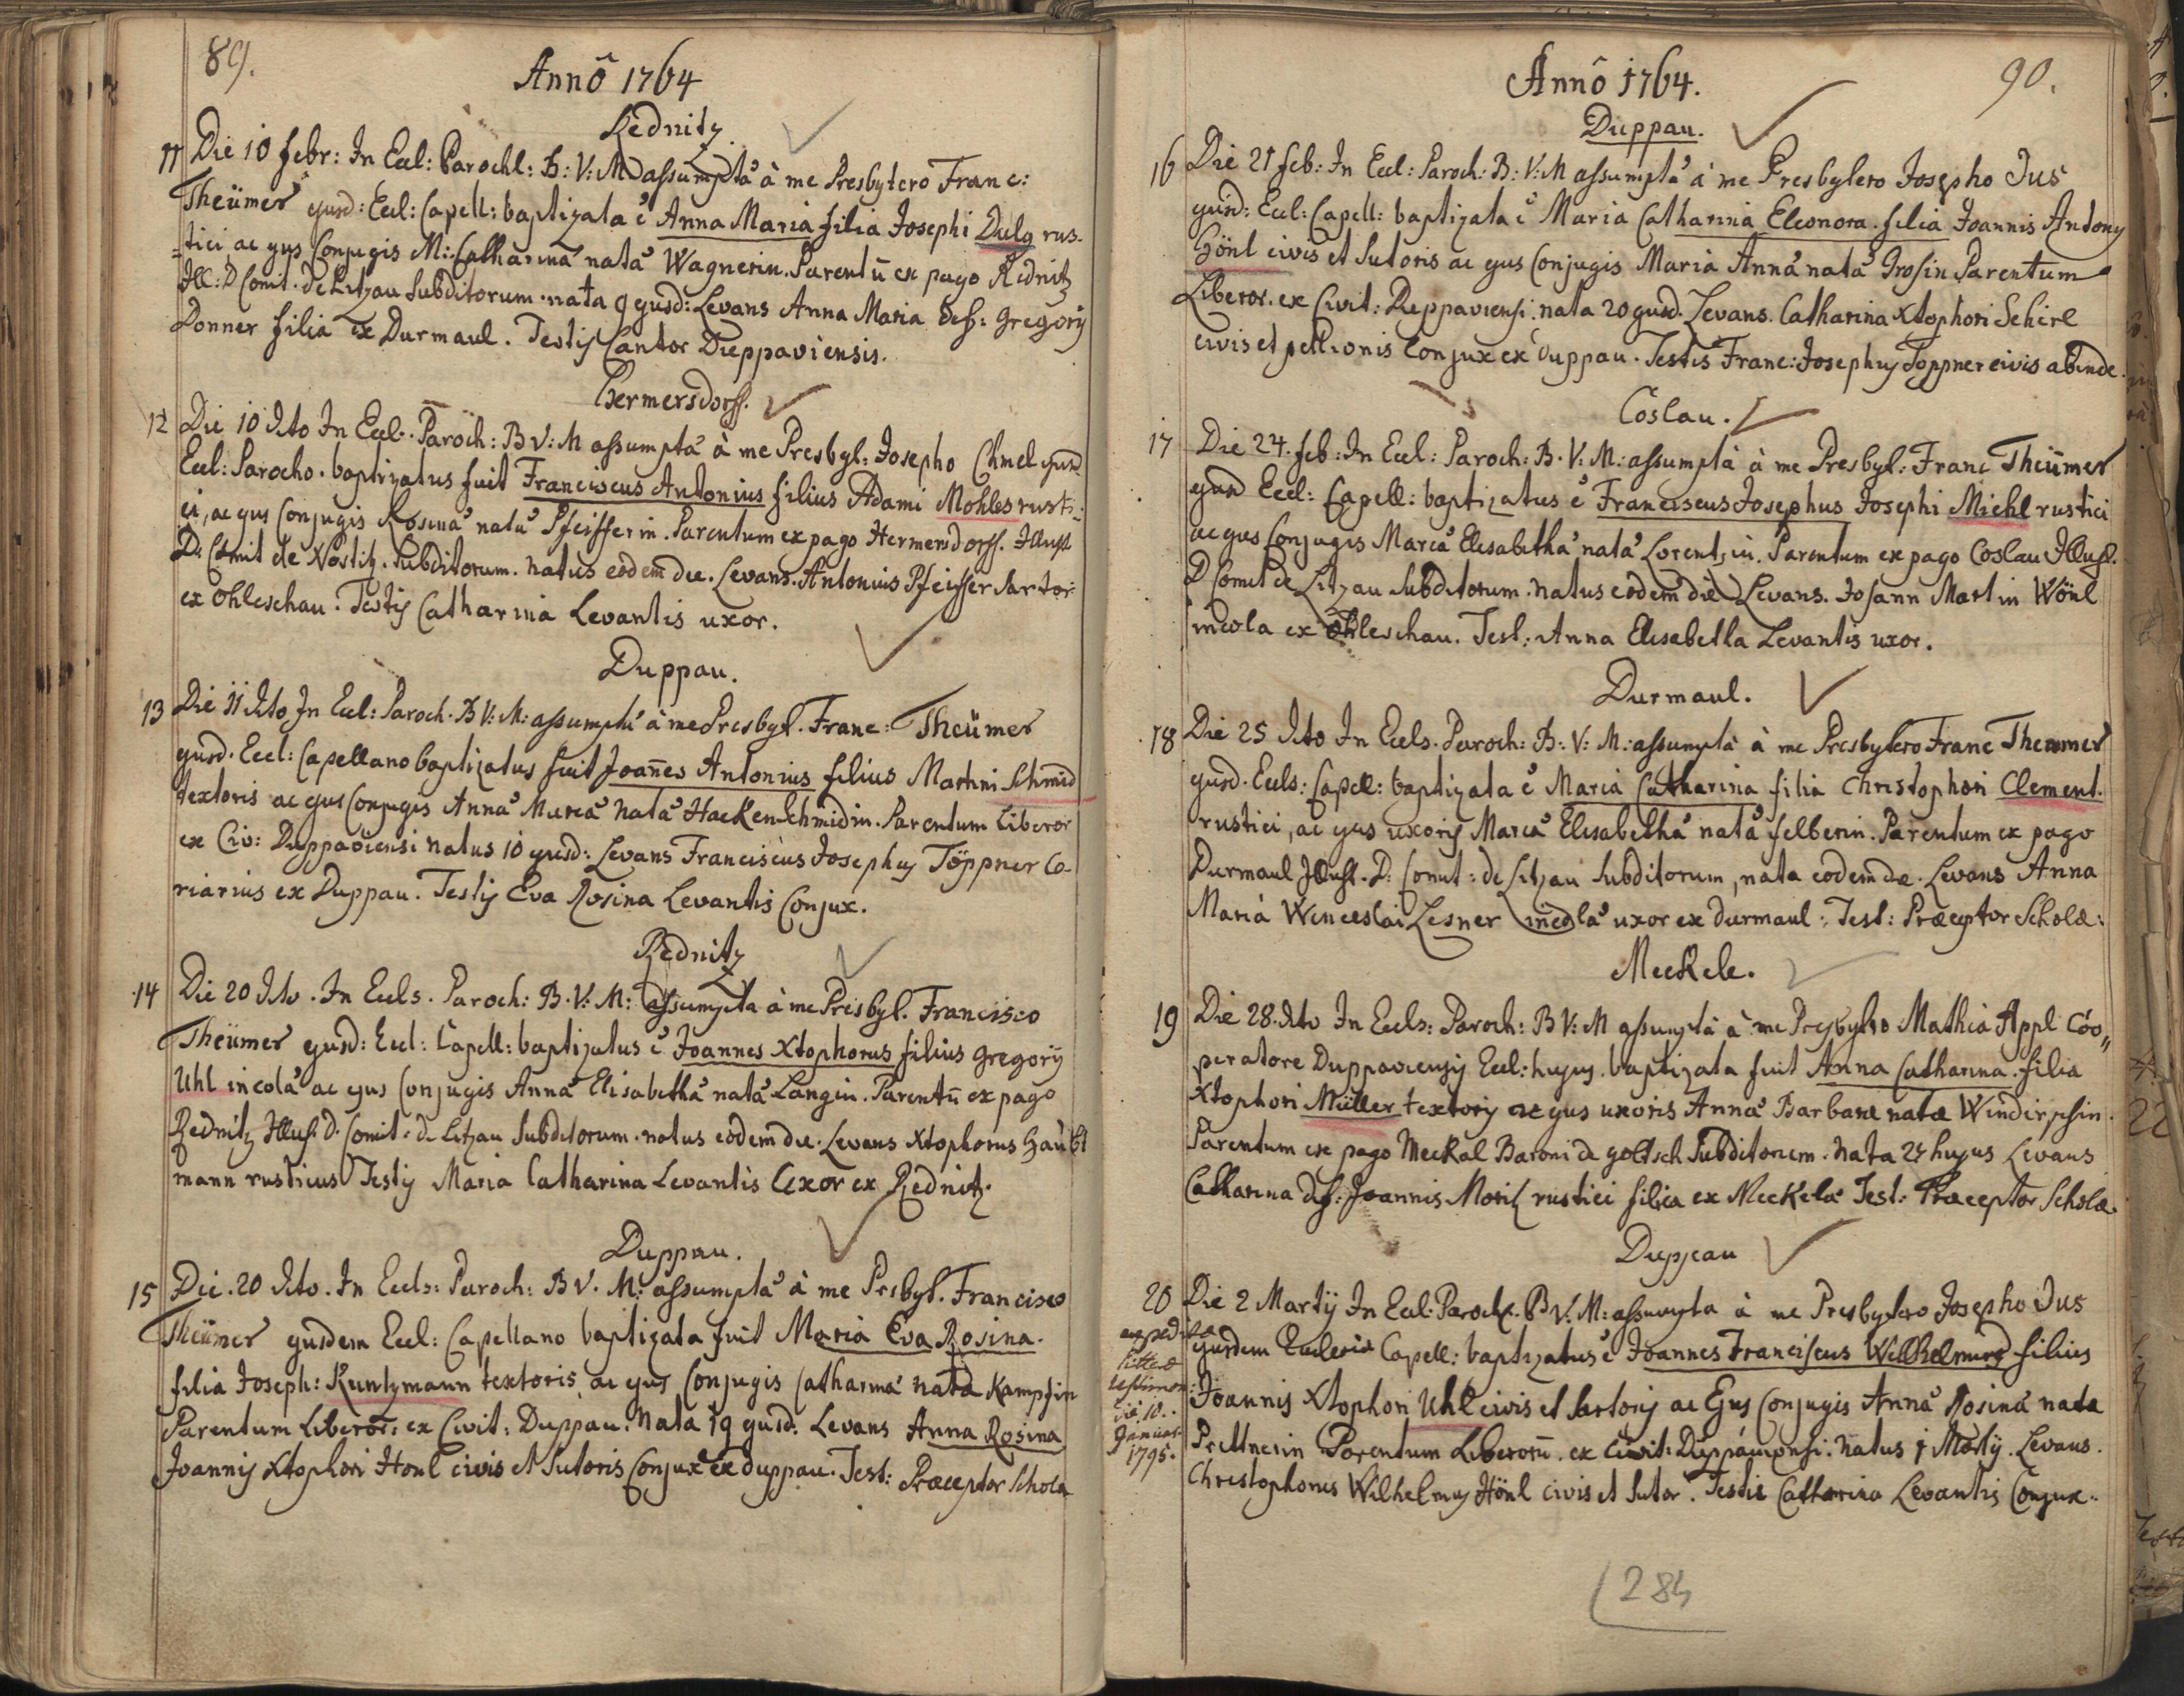 89.
Annô 1764
Rednitz
11 Die 10 febr: In Eccl: Parochl: B: V: M assumptâ à me Presbytero Franc:
Theümer ejusd: Eccl: Capell: baptizata ê Anna Maria filia Josephi Dulg rus-
-tici ac ejus Conjugis M: Catharinâ natâ Wagnerin. Parentū ex pago Rednitz
Ill: D Comit. de Litzau Subditorum. nata 9 ejusd: Levans Anna Maria def: Gregorÿ
Donner filia ex Durmaul. Testis Cantor Duppaviensis.
Hermersdorff.
12 Die 10 dto In Eccl. Paroch: B V: M assumptâ à me Presbyt: Josepho Chmel ejusd
Eccl: Parocho. baptizatus fuit Franciscus Antonius filius Adami Mohles rusti-
ci, ac ejus Conjugis Rosinâ natâ Pfeifferin. Parentum ex pago Hermersdorff. Illust
D. Comit de Nostitz. Subditorum. natus eodem die. Levans. Antonius Pfeiffer Sartor
ex ohleschau. Testis Catharina Levantis uxor.
Duppau.
13 Die 11 dto In Eccl: Paroch. B V: M: assumptâ à me Presbyt. Franc: Theümer
ejusd. Eccl: Capellano baptizatus fuit Joañes Antonius filius Martini Schmid
textoris ac ejus Conjugis Annâ Mariâ natâ Hackenschmidin. Parentum Liberor
ex Civ: Duppaviensi natus 10 ejusd: Levans Franciscus Josephus Töppner Co-
riarius ex Duppau. Testis Eva Rosina Levantis Conjux.
Rednitz
14 Die 20 dto. In Eccls. Paroch: B. V: M: assumpta à me Presbyt. Francisco
Theümer ejusd: Eccl: Capell: baptizatus ê Joannes Xtophorus filius Gregorÿ
Uhl incolâ ac ejus Conjugis Annâ Elisabethâ natâ Langin. Parentū ex pago
Rednitz Illust. D. Comit: de Litzau Subditorum. natus eodem die. Levans Xtophorus Haubt
mann rusticus Testis Maria Catharina Levantis Uxor ex Rednitz.
Duppau.
15 Die. 20 dto. In Eccls: Paroch: B V. M: assumptâ à me Presbyt. Francisco
Theümer ejusdem Eccl: Capellano baptizata fuit Maria Eva Rosina.
filia Joseph: Kuntzmann textoris, ac ejus Conjugis Catharinâ natâ Kampfin
Parentum Liberor: ex Civit: Duppau: Nata 19 ejusd: Levans Anna Rosina
Joannis Xtophori Honl civis et Sutoris Conjux ex duppau. Test: Præceptor Schola
90.
Annô 1764.
Duppau.
16 Die 21 feb: In Eccl: Paroch: B: V: M assumptâ à me Presbytero Josepho Jus
ejusd: Eccl: Capell: baptizata ê Maria Catharina Eleonora filia Joannis Antonÿ
Hönl civis et Sutoris ac ejus Conjugis Mariâ Annâ natâ Grosin Parentum
Liberor. ex Civit: Duppaviensi: nata 20 ejusd. Levans. Catharina Xtophori Schirl
civis et pellionis Conjux ex Duppau. Testis Franc: Josephus Toppner civis abinde.
Coslau.
17 Die 24. feb: In Eccl: Paroch: B. V: M: assumptâ à me Presbyt: Franc Theümer
ejusd Eccl: Capell: baptizatus ê Franciscus Josephus Josephi Michl rustici
ac ejus Conjugis Mariâ Elisabethâ natâ Lorentzin. Parentum ex pago Coslau Illust.
D Comit de Litzau Subditorum. natus eodem die Levans. Johann Martin Wönl
incola ex ohleschau. Test: Anna Elisabetha Levantis uxor.
Durmaul.
18 Die 25 dto In Eccls. Paroch: B: V: M: assumptâ à me Presbytero Franc Theumer
ejusd. Eccls: Capell: baptizata ê Maria Catharina filia Christophori Clement.
rustici, ac ejus uxoris Mariâ Elisabethâ natâ felberin. Parentum ex pago
Durmaul Illust. D: Comit: de Litzau Subditorum, nata eodem die. Levans Anna
Maria Wenceslai Lesner incolâ uxor ex durmaul: Test: Præceptor Scholæ:
Meckele.
19 Die 28. dto In Eccls: Paroch: B V: M assumptâ à me Presbytro Mathia Appl Coo„
peratore Duppaviensis Eccl: hujus. baptizata fuit Anna Catharina filia
Xtophori Müller textoris ac ejus uxoris Annâ Barbaræ natæ Windirschin
Parentum ex pago Meckal Baroni de goltsch Subditorum. Nata 27 hujus Levans
Catharina def: Joannis Moritz rustici filia ex Meckela Test: Præceptor Scholæ.
Duppau
20 Die 2 Martÿ In Eccl: Paroch. B V. M: assumpta à me Presbytero Josepho Jus
ejusdem Ecclesiæ Capell: baptizatus ê Joannes Franciscus Wilhelmus filius
Joannis Xtophori Uhl civis et Sartoris ac Ejus Conjugis Annâ Rosinâ nata
Prettnerin Parentum Liberorū. ex Civit: Duppaviensi: Natus 1 Martÿ. Levans.
Christophorus Wilhelmus Hönl civis et Sutor. Testis Catharina Levantis Conjux.
expedita
Litteræ
testimon:
die 10.
Januar.
1795.
284